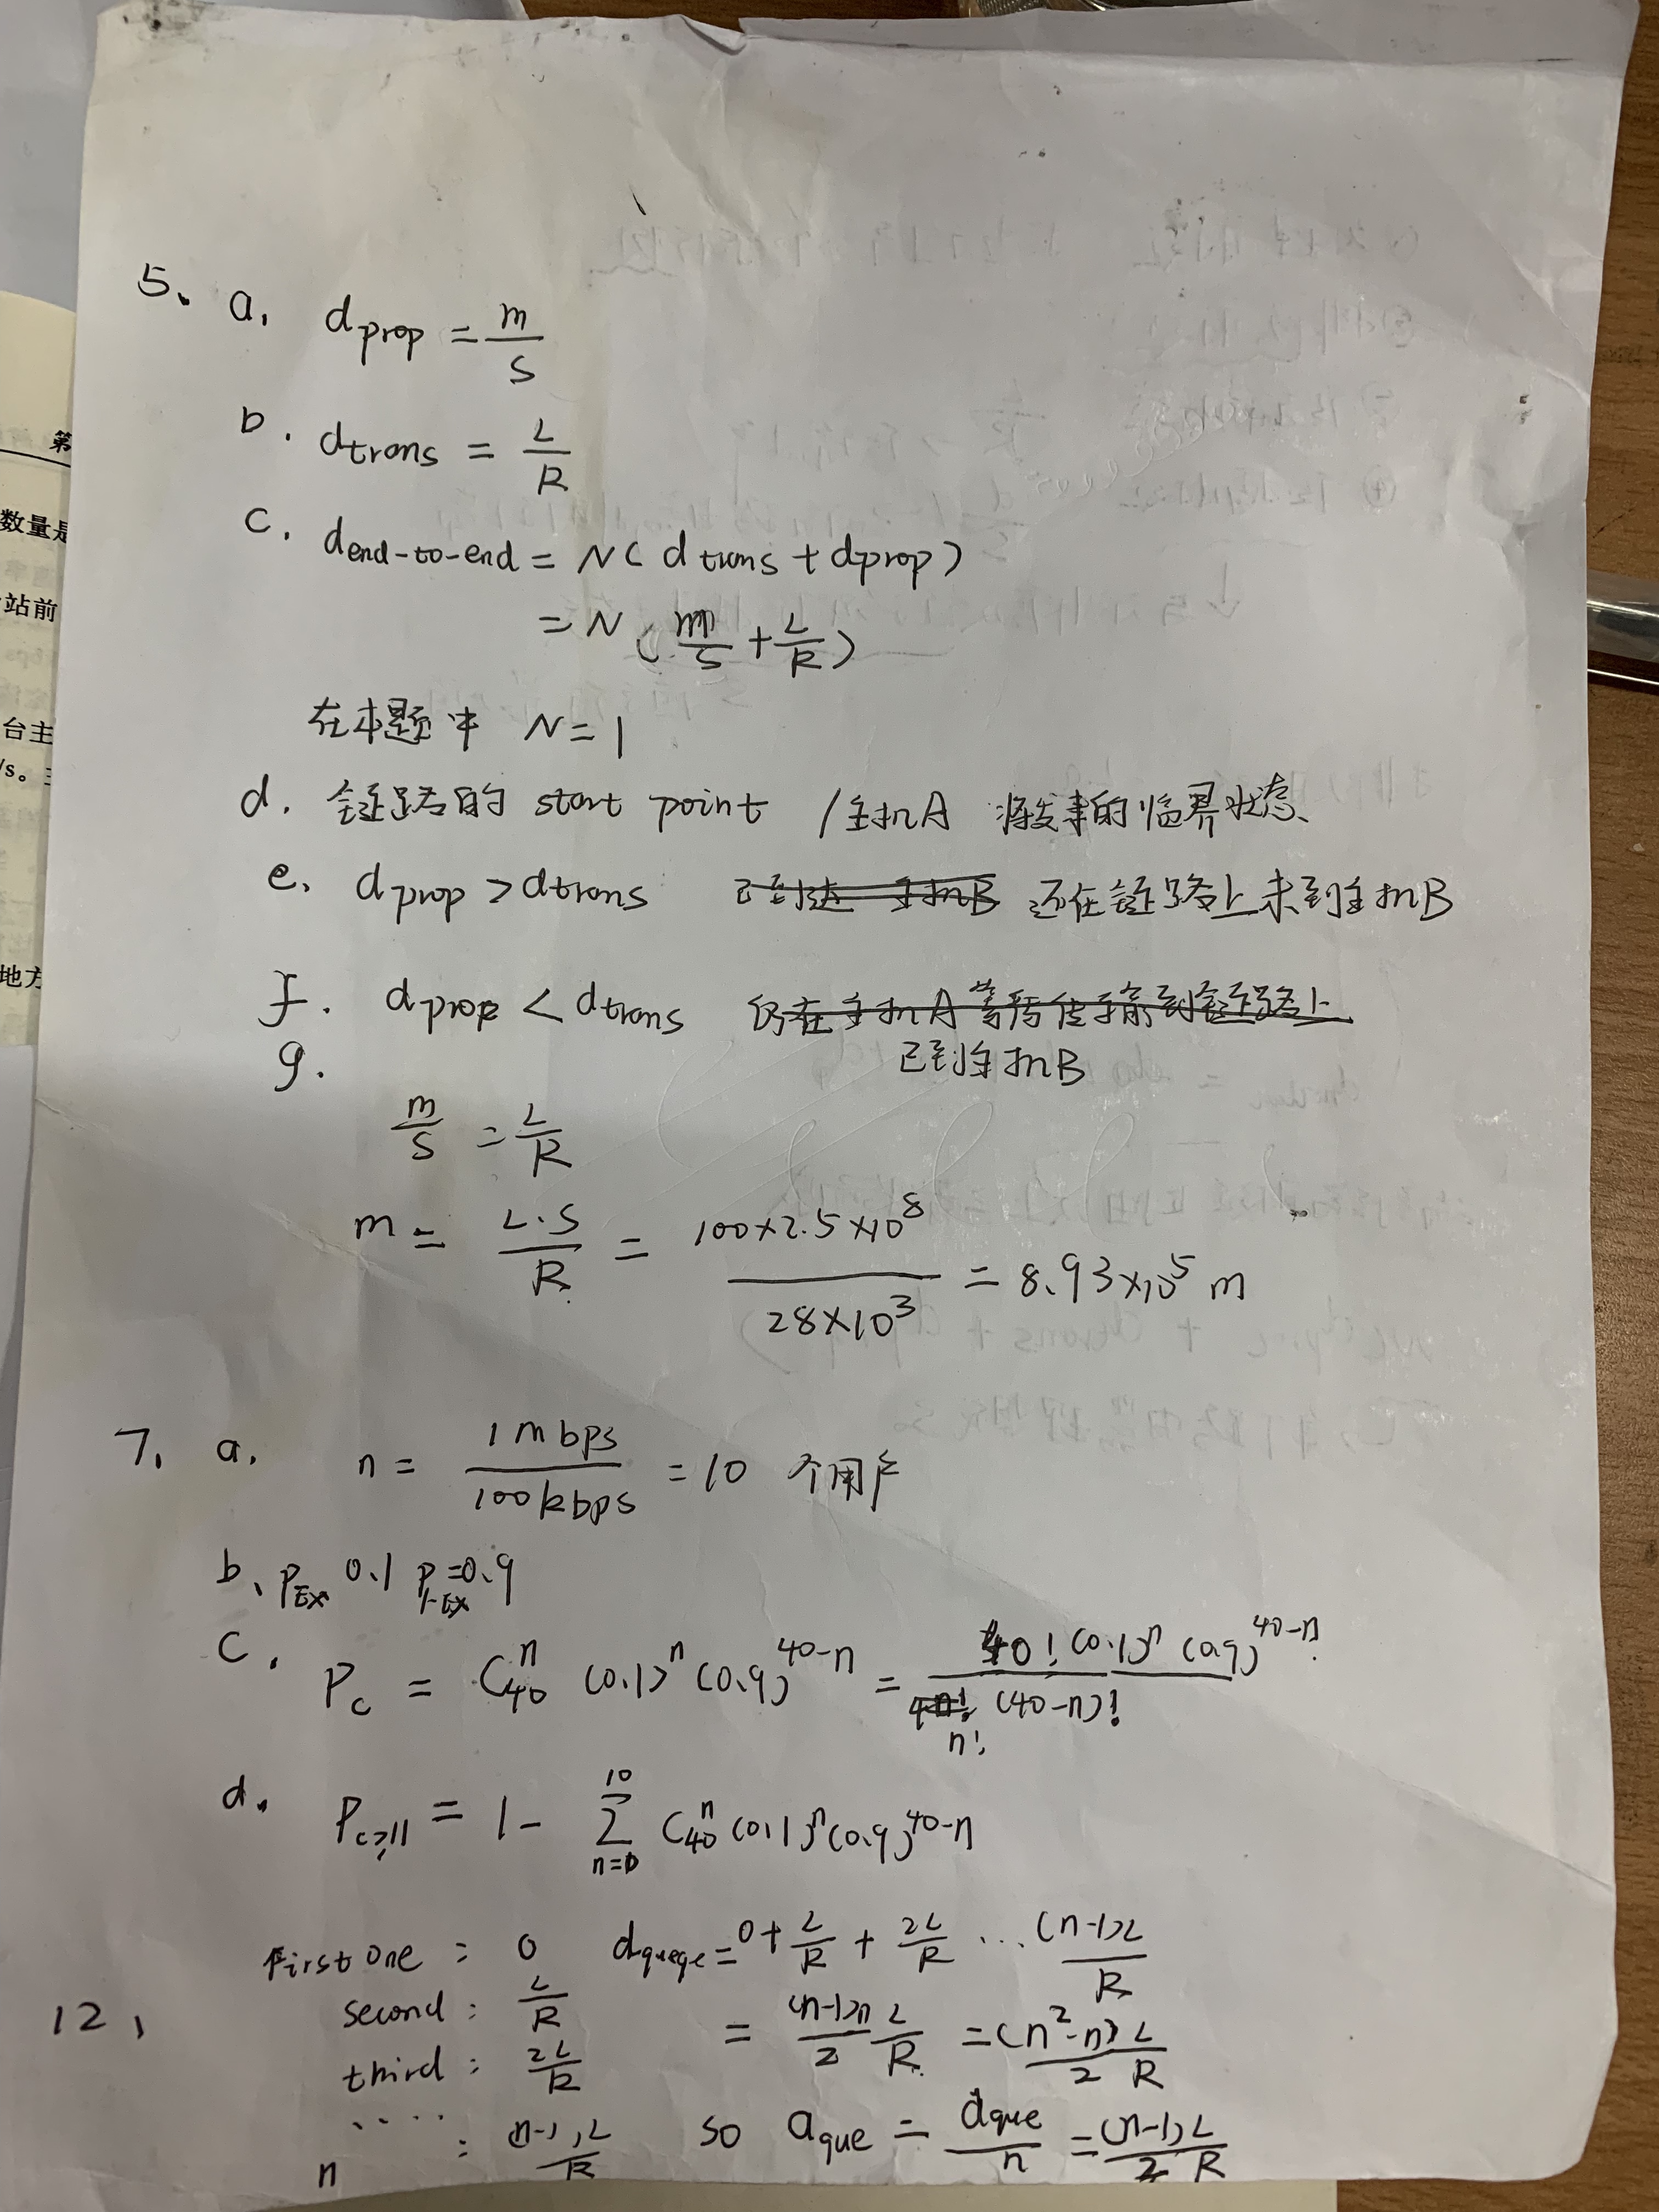 5、 a. dprop = m/s
b. dtrans = L/R
c. dend-to-end = N(dtrans + dprop)
= N(m/s + L/R)
在本题中 N = 1
d. 链路的 start point / 主机A 将发来的临界状态、
e. dprop > dtrans 已到达主机B 还在链路上未到主机B
f. dprop < dtrans 仍在主机A等待传输到链路上
已到主机B
g.
m/s = L/R
m = L·S/R = 100×2.5×10^8 / 28×10^3 = 8.93×10^5 m
7、 a. n = 1mbps/100kbps = 10 个用户
b、 PEX 0.1 P1-EX=0.9
c. Pc = C40^n (0.1)^n (0.9)^40-n = 40! (0.1)^n (0.9)^40-n / n! (40-n)!
d. Pc≥11 = 1 - Σ n=0 10 C40^n (0.1)^n (0.9)^40-n
12、 First one : 0 dqueqe = 0 + L/R + 2L/R ... (n-1)L/R
second : L/R = (n-1)n/2 L/R = (n²-n)/2 L/R
third : 2L/R
.....
n : (n-1)L/R so aque = dque/n = (n-1)/2 L/R
第
数量是
站前
台主
/s。
地方